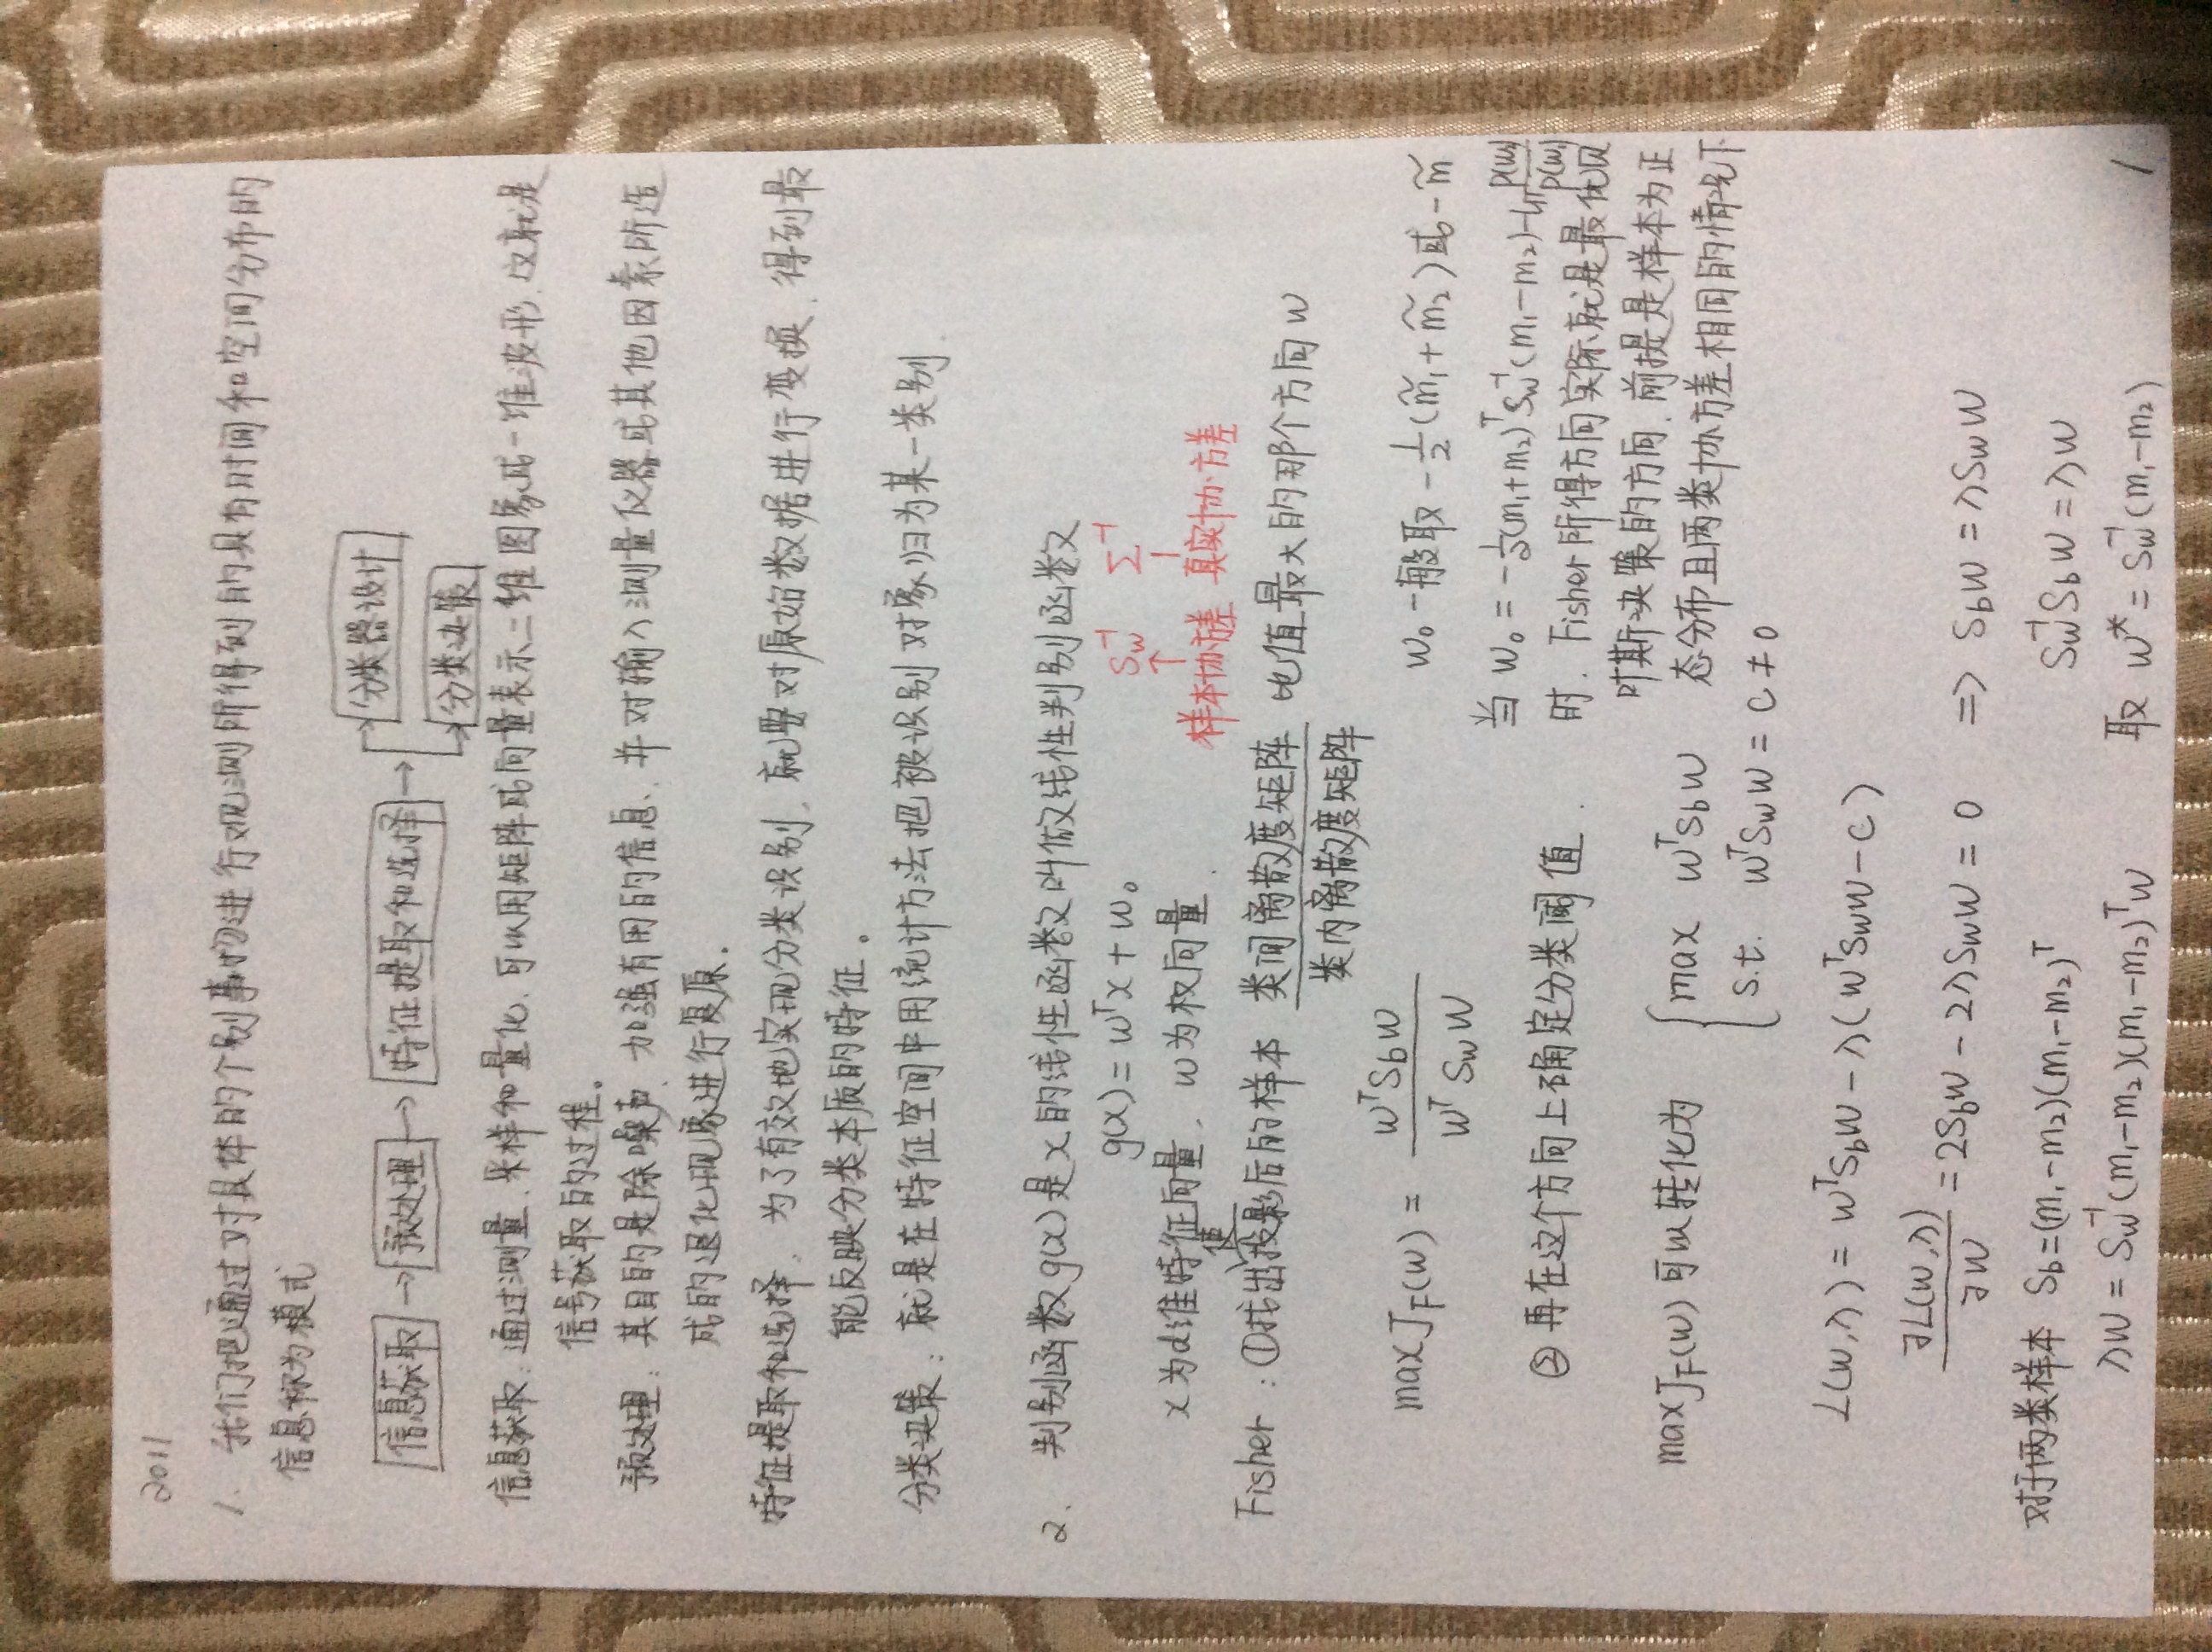 2011
1. 我们把通过对具体的个别事物进行观测所得到的具有时间和空间分布的
信息称为模式
信息获取 → 预处理 → 特征提取和选择 → 分类器设计
分类决策
信息获取：通过测量、采样和量化、可以用矩阵或向量表示二维图象或一维波形、这就是
信号获取的过程。
预处理：其目的是除噪声、加强有用的信息、并对输入测量仪器或其他因素所造
成的退化现象进行复原.
特征提取和选择、为了有效地实现分类识别、就要对原始数据进行变换、得到最
能反映分类本质的特征。
分类决策：就是在特征空间中用统计方法把被识别对象归为某一类别.
2. 判别函数g(x)是x的线性函数叫做线性判别函数
g(x)=wᵀx+w₀
Sw⁻¹ Σ⁻¹
↑ |
样本协方差 真实协方差
x为d维特征向量、w为权向量.
Fisher：①找出使投影后的样本 类间离散度矩阵/类内离散度矩阵 比值最大的那个方向w
max J_F(w) = wᵀS_bw / wᵀS_ww
w₀一般取 -1/2(m̃₁+m̃₂)或-m̃
②再在这个方向上确定分类阈值.
当 w₀=-1/2(m₁+m₂)ᵀSw⁻¹(m₁-m₂)-ln
时、Fisher所得方向实际就是最优贝
叶斯决策的方向、前提是样本为正
态分布且两类协方差相同的情况下
max J_F(w) 可以转化为 { max wᵀS_bw
s.t. wᵀS_ww=c≠0
L(w,λ)=wᵀS_bw-λ(wᵀS_ww-c)
∂L(w,λ)/∂w = 2S_bw-2λS_ww=0 => S_bw=λS_ww
对于两类样本 S_b=(m₁-m₂)(m₁-m₂)ᵀ Sw⁻¹S_bw=λw
λw=Sw⁻¹(m₁-m₂)(m₁-m₂)ᵀw 取 w*=Sw⁻¹(m₁-m₂)
1